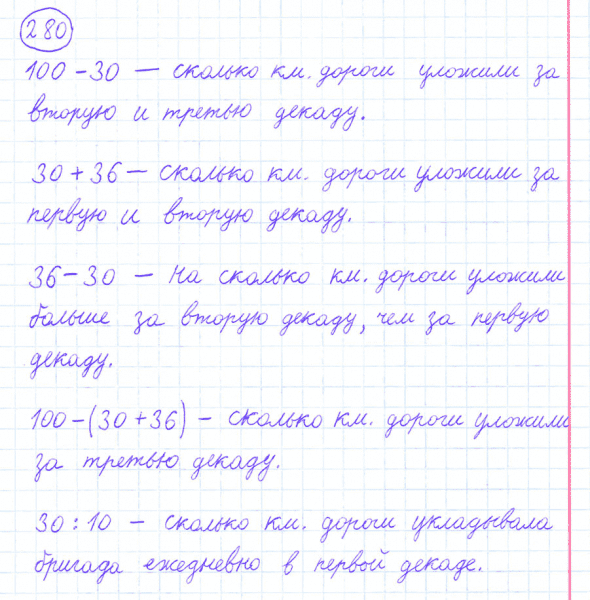 280
100 - 30 — сколько км. дороги уложили за
вторую и третью декаду.
30 + 36 — сколько км. дороги уложили за
первую и вторую декаду.
36 - 30 — На сколько км. дороги уложили
больше за вторую декаду, чем за первую
декаду.
100 - (30 + 36) — сколько км. дороги уложили
за третью декаду.
30 : 10 — сколько км. дороги укладывала
бригада ежедневно в первой декаде.